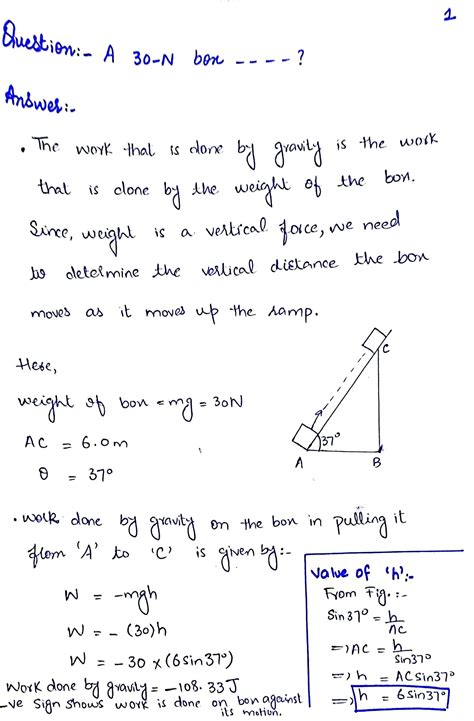 1
Question:- A 30-N box ----?
Answer:-
• The work that is done by gravity is the work
that is done by the weight of the box.
Since, weight is a vertical force, we need
to determine the vertical distance the box
moves as it moves up the ramp.
Here,
weight of box = mg = 30N
AC = 6.0m
θ = 37°
C
37°
A
B
• work done by gravity on the box in pulling it
from 'A' to 'C' is given by:-
W = -mgh
W = - (30)h
W = - 30 × (6sin37°)
Work done by gravity = -108.33J
-ve sign shows work is done on box against
its motion.
Value of 'h':-
From Fig.:-
Sin37° = h/AC
=> AC = h/sin37°
=> h = ACsin37°
=> h = 6sin37°